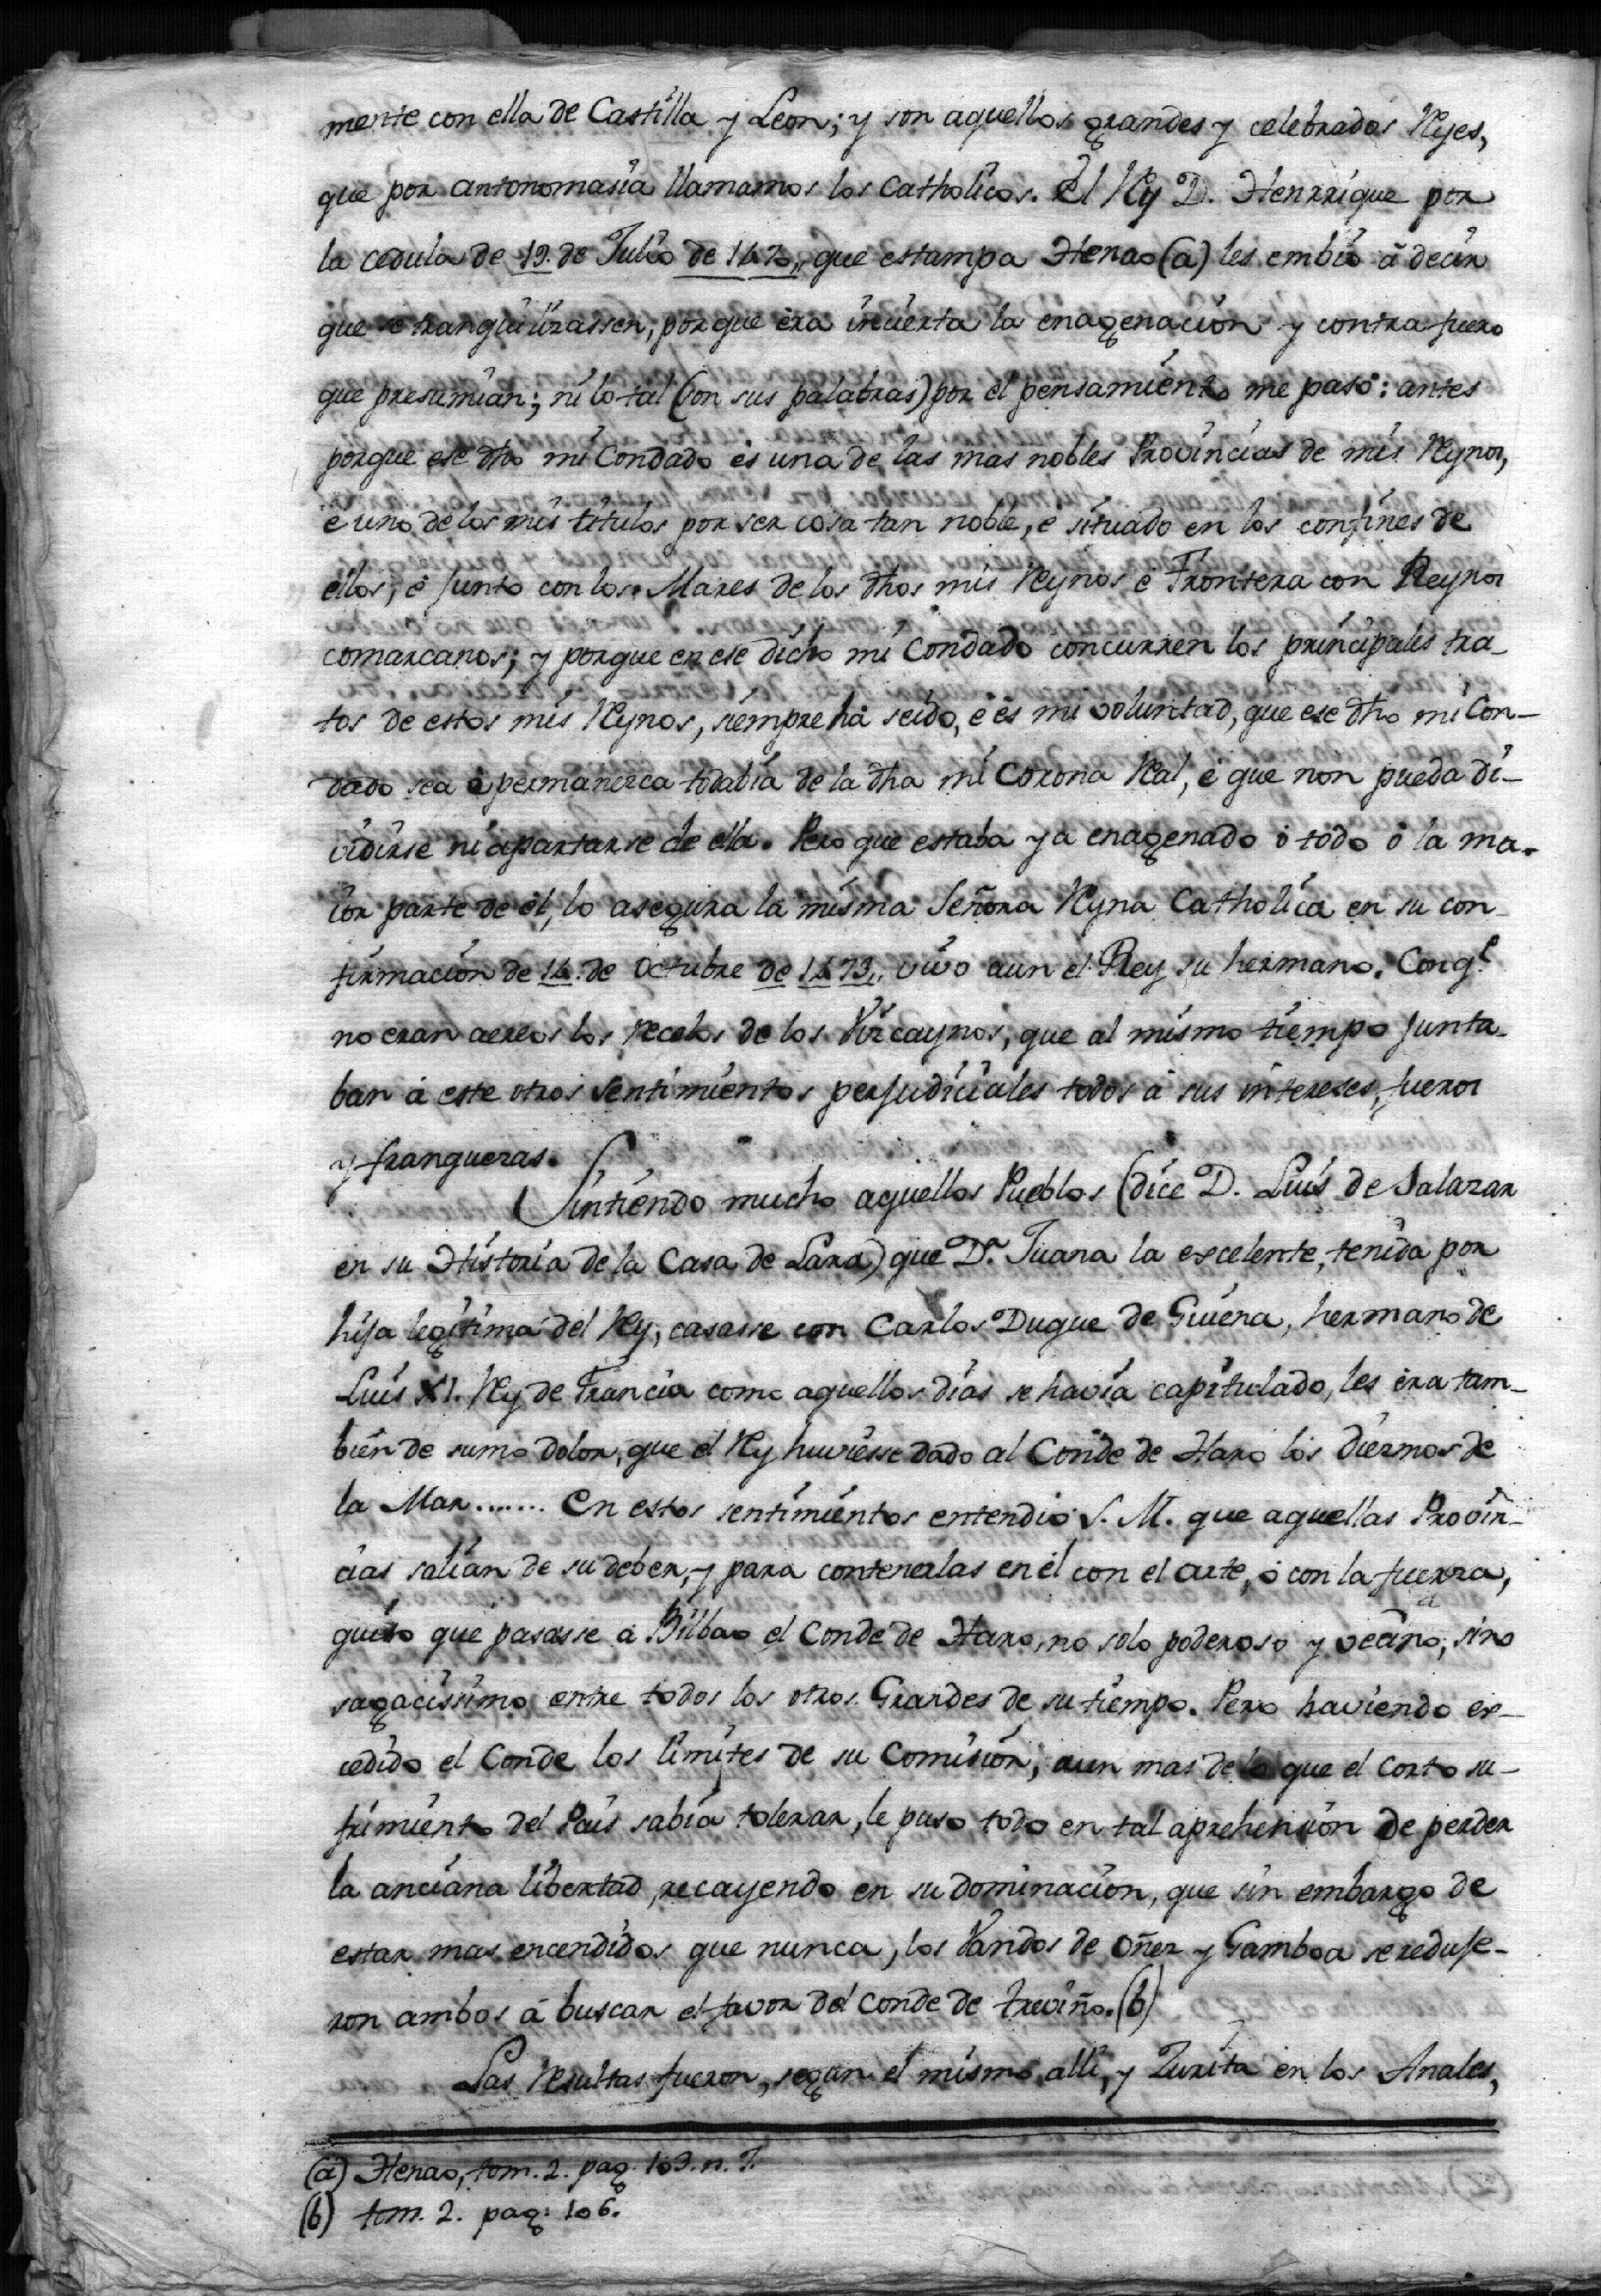 mente con ella de Castilla y Leon; y son aquellos grandes y celebrados Ryes,
que por antonomasia llamamos los Catholicos. El Ry D. Henrrique por
la cedula de 19. de Julio de 1470,, que estampa Henao (a) les embió á decir
que se tranquilizassen, porque éra incierta la enagenacion y contra fuero
que presumian; ni lo tal (son sus palabras) por el pensamiento me pasó: antes
porque ese dho mi Condado es una de las mas nobles Provincias de mis Rynos,
e uno de los mis titulos por ser cosa tan noble, e situado en los confines de
ellos, é junto con los Mares de los dhos mis Rynos é Frontera con Reynos
comarcanos; y porque en ese dicho mi Condado concurren los principales tra-
tos de estos mis Rynos, siempre há seido, é és mi voluntad, que ese dho mi Con-
dado sea é permanezca todabia de la dha mi Corona Ral, é que non pueda di-
vidirse ni apartarse de ella. Pero que estaba ya enagenado ó todo ó la ma-
ior parte de él, lo asegura la misma Señora Ryna Catholica en su con-
firmacion de 14. de Octubre de 1473,, vivo aun el Rey su hermano. Conq.e
no eran aereos los recelos de los Vizcaynos, que al mismo tiempo junta-
ban á este otros sentimientos perjudiciales todos á sus intereses, fueros
y franquezas.
Sintiendo mucho aquellos Pueblos (dice D. Luis de Salazar
en su Historia de la Casa de Lara) que D.a Juana la excelente, tenida por
hija legitima del Ry, casasse con Carlos Duque de Guiena, hermano de
Luis XI. Ry de Francia como aquellos dias se havia capitulado, les éra tam-
bien de sumo dolor, que el Ry huviesse dado al Conde de Haro los diezmos de
la Mar....... En estos sentimientos entendió S. M. que aquellas Provin-
cias salian de su deber, y para contenerlas en él con el arte, ó con la fuerza,
quiso que pasasse á Bilbao el Conde de Haro, no solo poderoso y vecino, sino
sagacissimo entre todos los otros Grandes de su tiempo. Pero haviendo ex-
cedido el Conde los limites de su Comision, aun mas de lo que el corto su-
frimiento del Pais sabia tolerar, le puso todo en tal aprehension de perder
la anciana libertad, recayendo en su dominacion, que sin embargo de
estar mas encendidos que nunca, los Vandos de Oñez y Gamboa se reduje-
ron ambos á buscar el favor del Conde de treviño. (b)
Las Resultas fueron, segun el mismo alli, y Zurita en los Anales,
(a) Henao, tom. 2. pag. 103. n. 7.
(b) tom. 2. pag: 106.